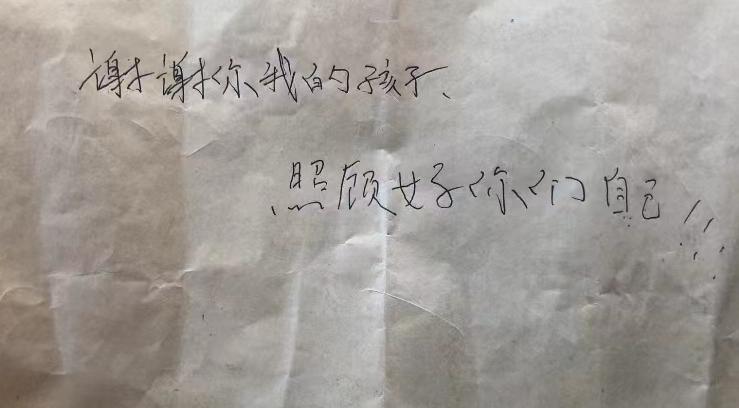 谢谢你我的孩子、
照顾好你们自己!!!